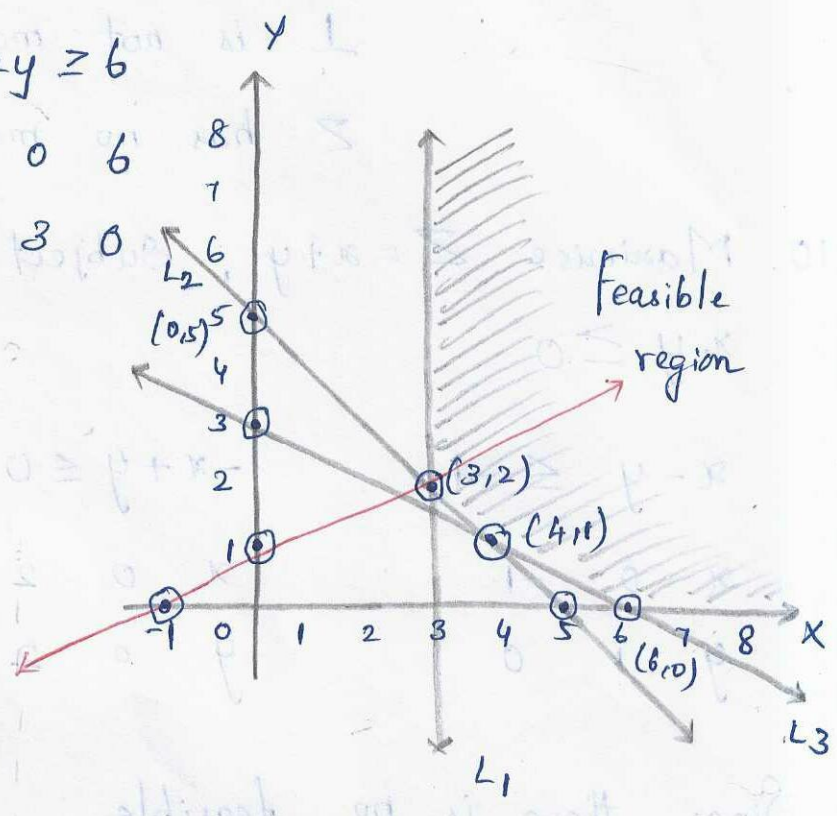 Y
-y ≥ 6
0 6
3 0
8
7
6
L2
(0,5) 5
4
3
2
1
Feasible
region
(3,2)
(4,1)
-1 0 1 2 3 4 5 6 7 8 X
(6,0)
L3
L1